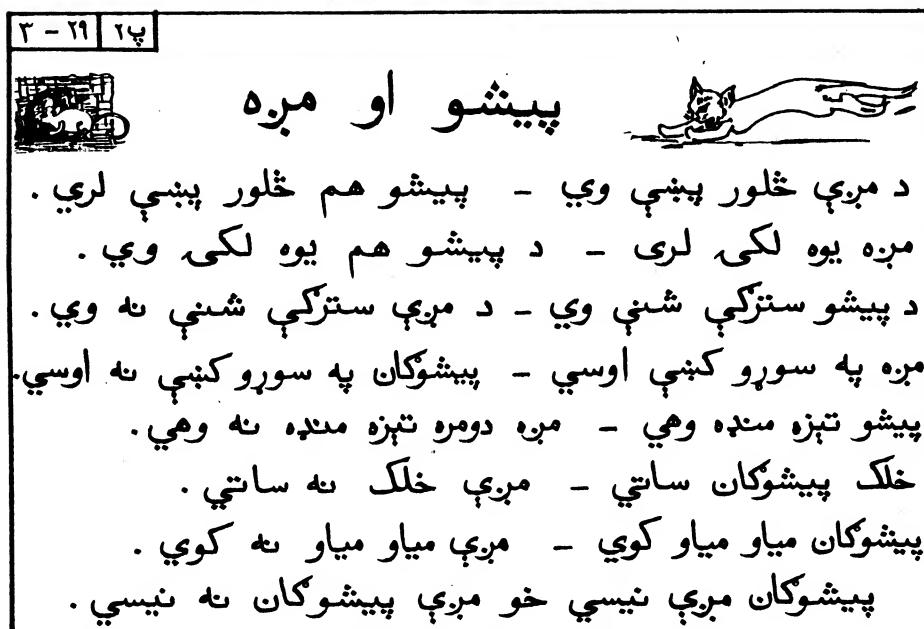 پ۲ ۲۹ - ۳
پيشو او مږه
د مږې څلور پښې وي - پيشو هم څلور پښې لري .
مږه يوه لکۍ لری - د پيشو هم يوه لکۍ وي .
د پيشو سترګې شنې وي - د مږې سترګې شنې نه وي .
مږه په سوړو کښې اوسي - پيشوګان په سوړو کښې نه اوسي.
پيشو تېزه منډه وهي - مږه دومره تېزه منډه نه وهي .
خلک پيشوګان ساتي - مږې خلک نه ساتي .
پيشوګان مياو مياو کوي - مږې مياو مياو نه کوي .
پيشوګان مږې نيسي خو مږې پيشوګان نه نيسي .